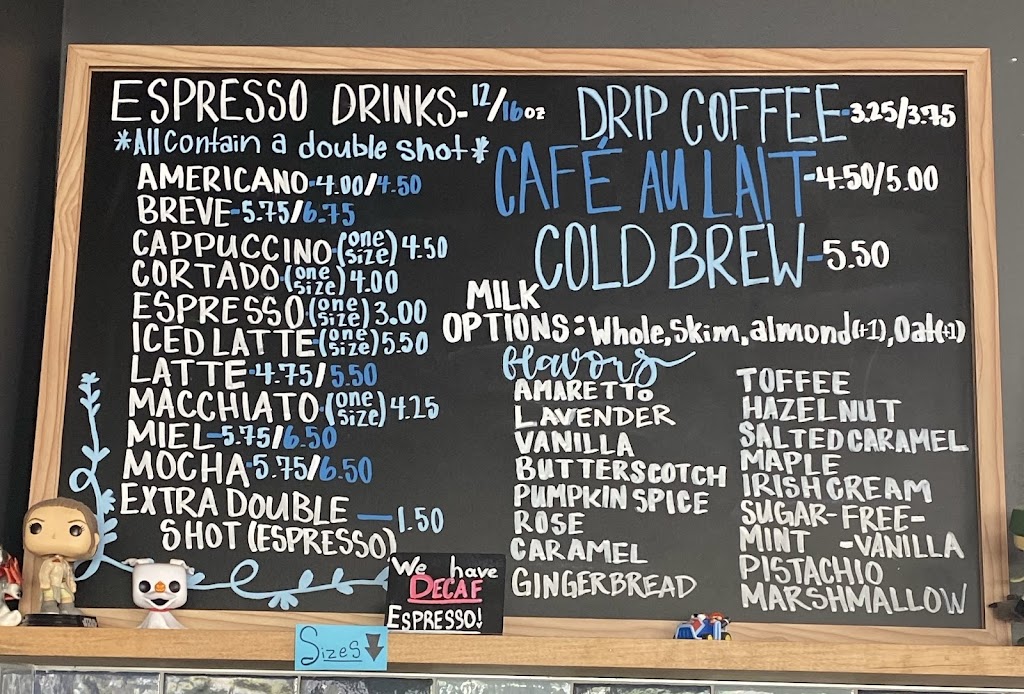 ESPRESSO DRINKS-12/16oz
*All contain a double shot*
AMERICANO-4.00/4.50
BREVE-5.75/6.75
CAPPUCCINO-(one size) 4.50
CORTADO-(one size) 4.00
ESPRESSO(one size) 3.00
ICED LATTE-(one size) 5.50
LATTE-4.75/5.50
MACCHIATO-(one size) 4.25
MIEL-5.75/6.50
MOCHA-5.75/6.50
EXTRA DOUBLE
SHOT (ESPRESSO) —1.50
DRIP COFFEE-3.25/3.75
CAFÉ AU LAIT-4.50/5.00
COLD BREW-5.50
MILK
OPTIONS: Whole, Skim, almond(+1), Oat(+1)
flavors
AMARETTO
LAVENDER
VANILLA
BUTTERSCOTCH
PUMPKIN SPICE
ROSE
CARAMEL
GINGERBREAD
TOFFEE
HAZELNUT
SALTED CARAMEL
MAPLE
IRISH CREAM
SUGAR-FREE-
MINT -VANILLA
PISTACHIO
MARSHMALLOW
We have
DECAF
ESPRESSO!
Sizes